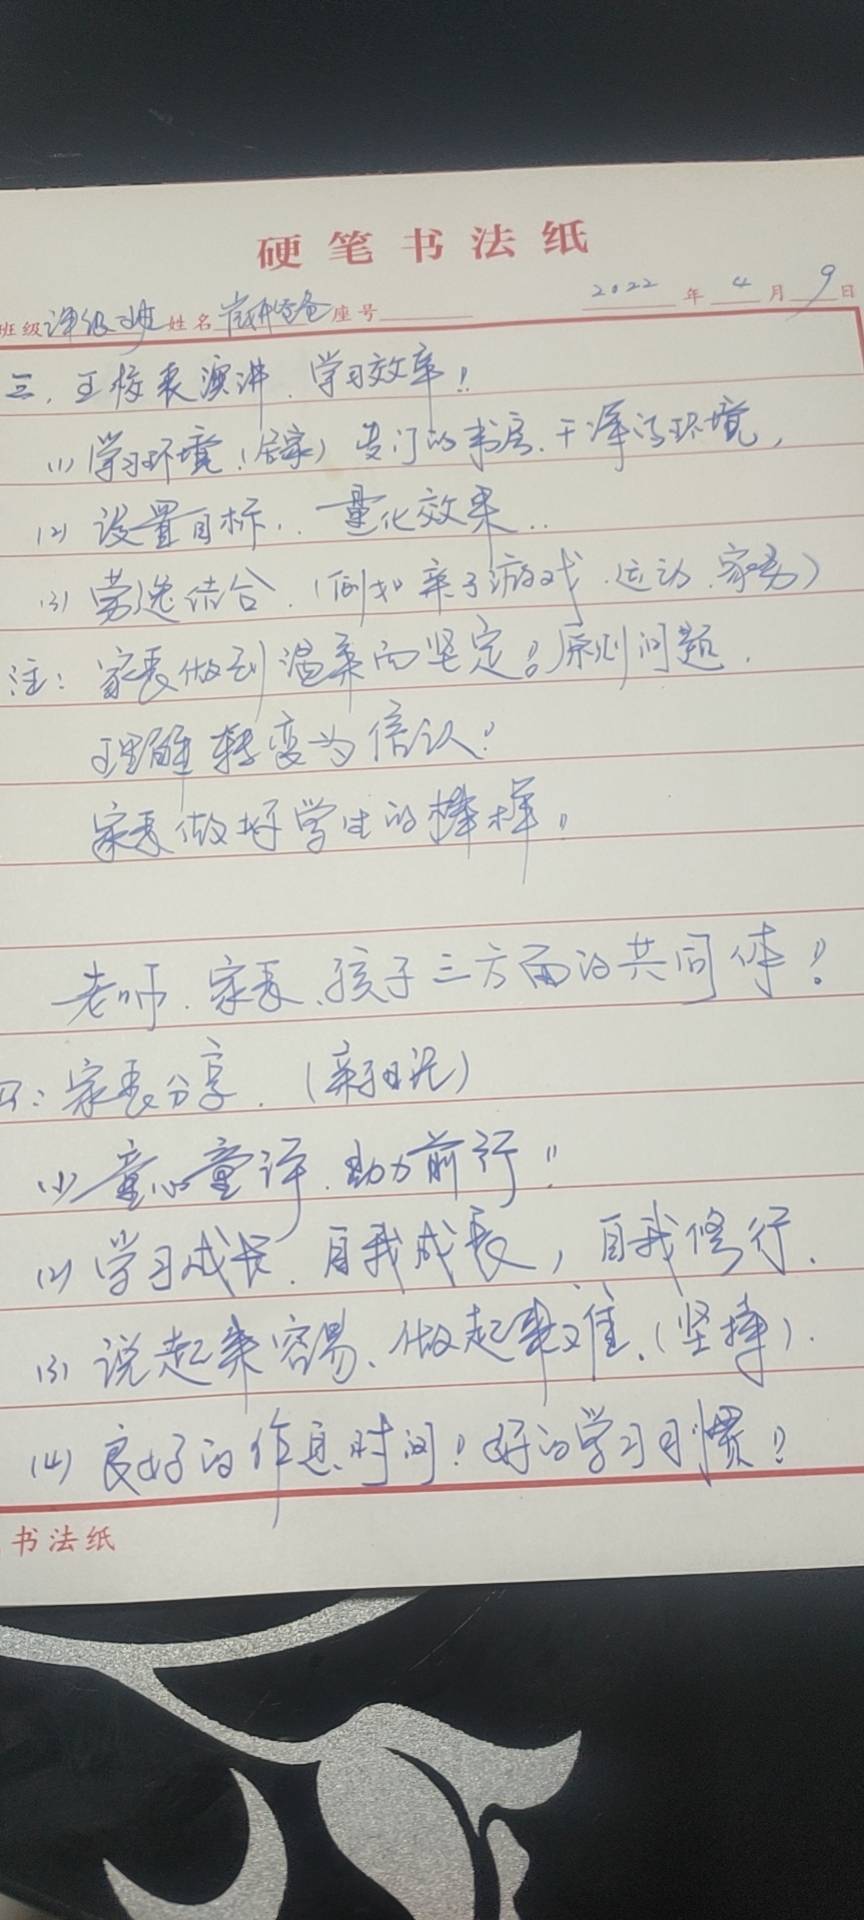 硬笔书法纸
班级 姓名 座号 2022年4月9日
三、王校长演讲.学习效率!
(1)学习环境!(居家)专门的书房.干净的环境,
(2)设置目标,.量化效果..
(3)劳逸结合.(例如亲子游戏.运动.家务)
注:家长做到温柔而坚定!原则问题.
理解转变为信认!
家长做好学生的榜样!
老师.家长、孩子三方面的共同体!
四:家长分享.(亲子日记)
(1)童心童评.助力前行!
(2)学习成长.自我成长,自我修行.
(3)说起来容易、做起来难.(坚持).
(4)良好的作息时间!好的学习习惯!
书法纸